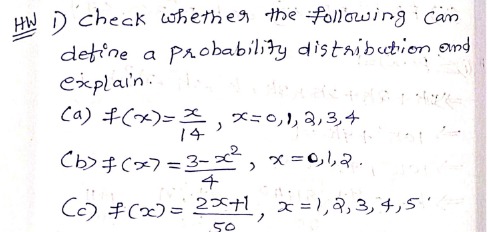 HW 1) check whether the following can
define a probability distribution and
explain.
(a) f(x) = x/14 , x=0,1,2,3,4
(b) f(x) = 3-x²/4 , x=0,1,2.
(c) f(x) = 2x+1/50 , x=1,2,3,4,5.